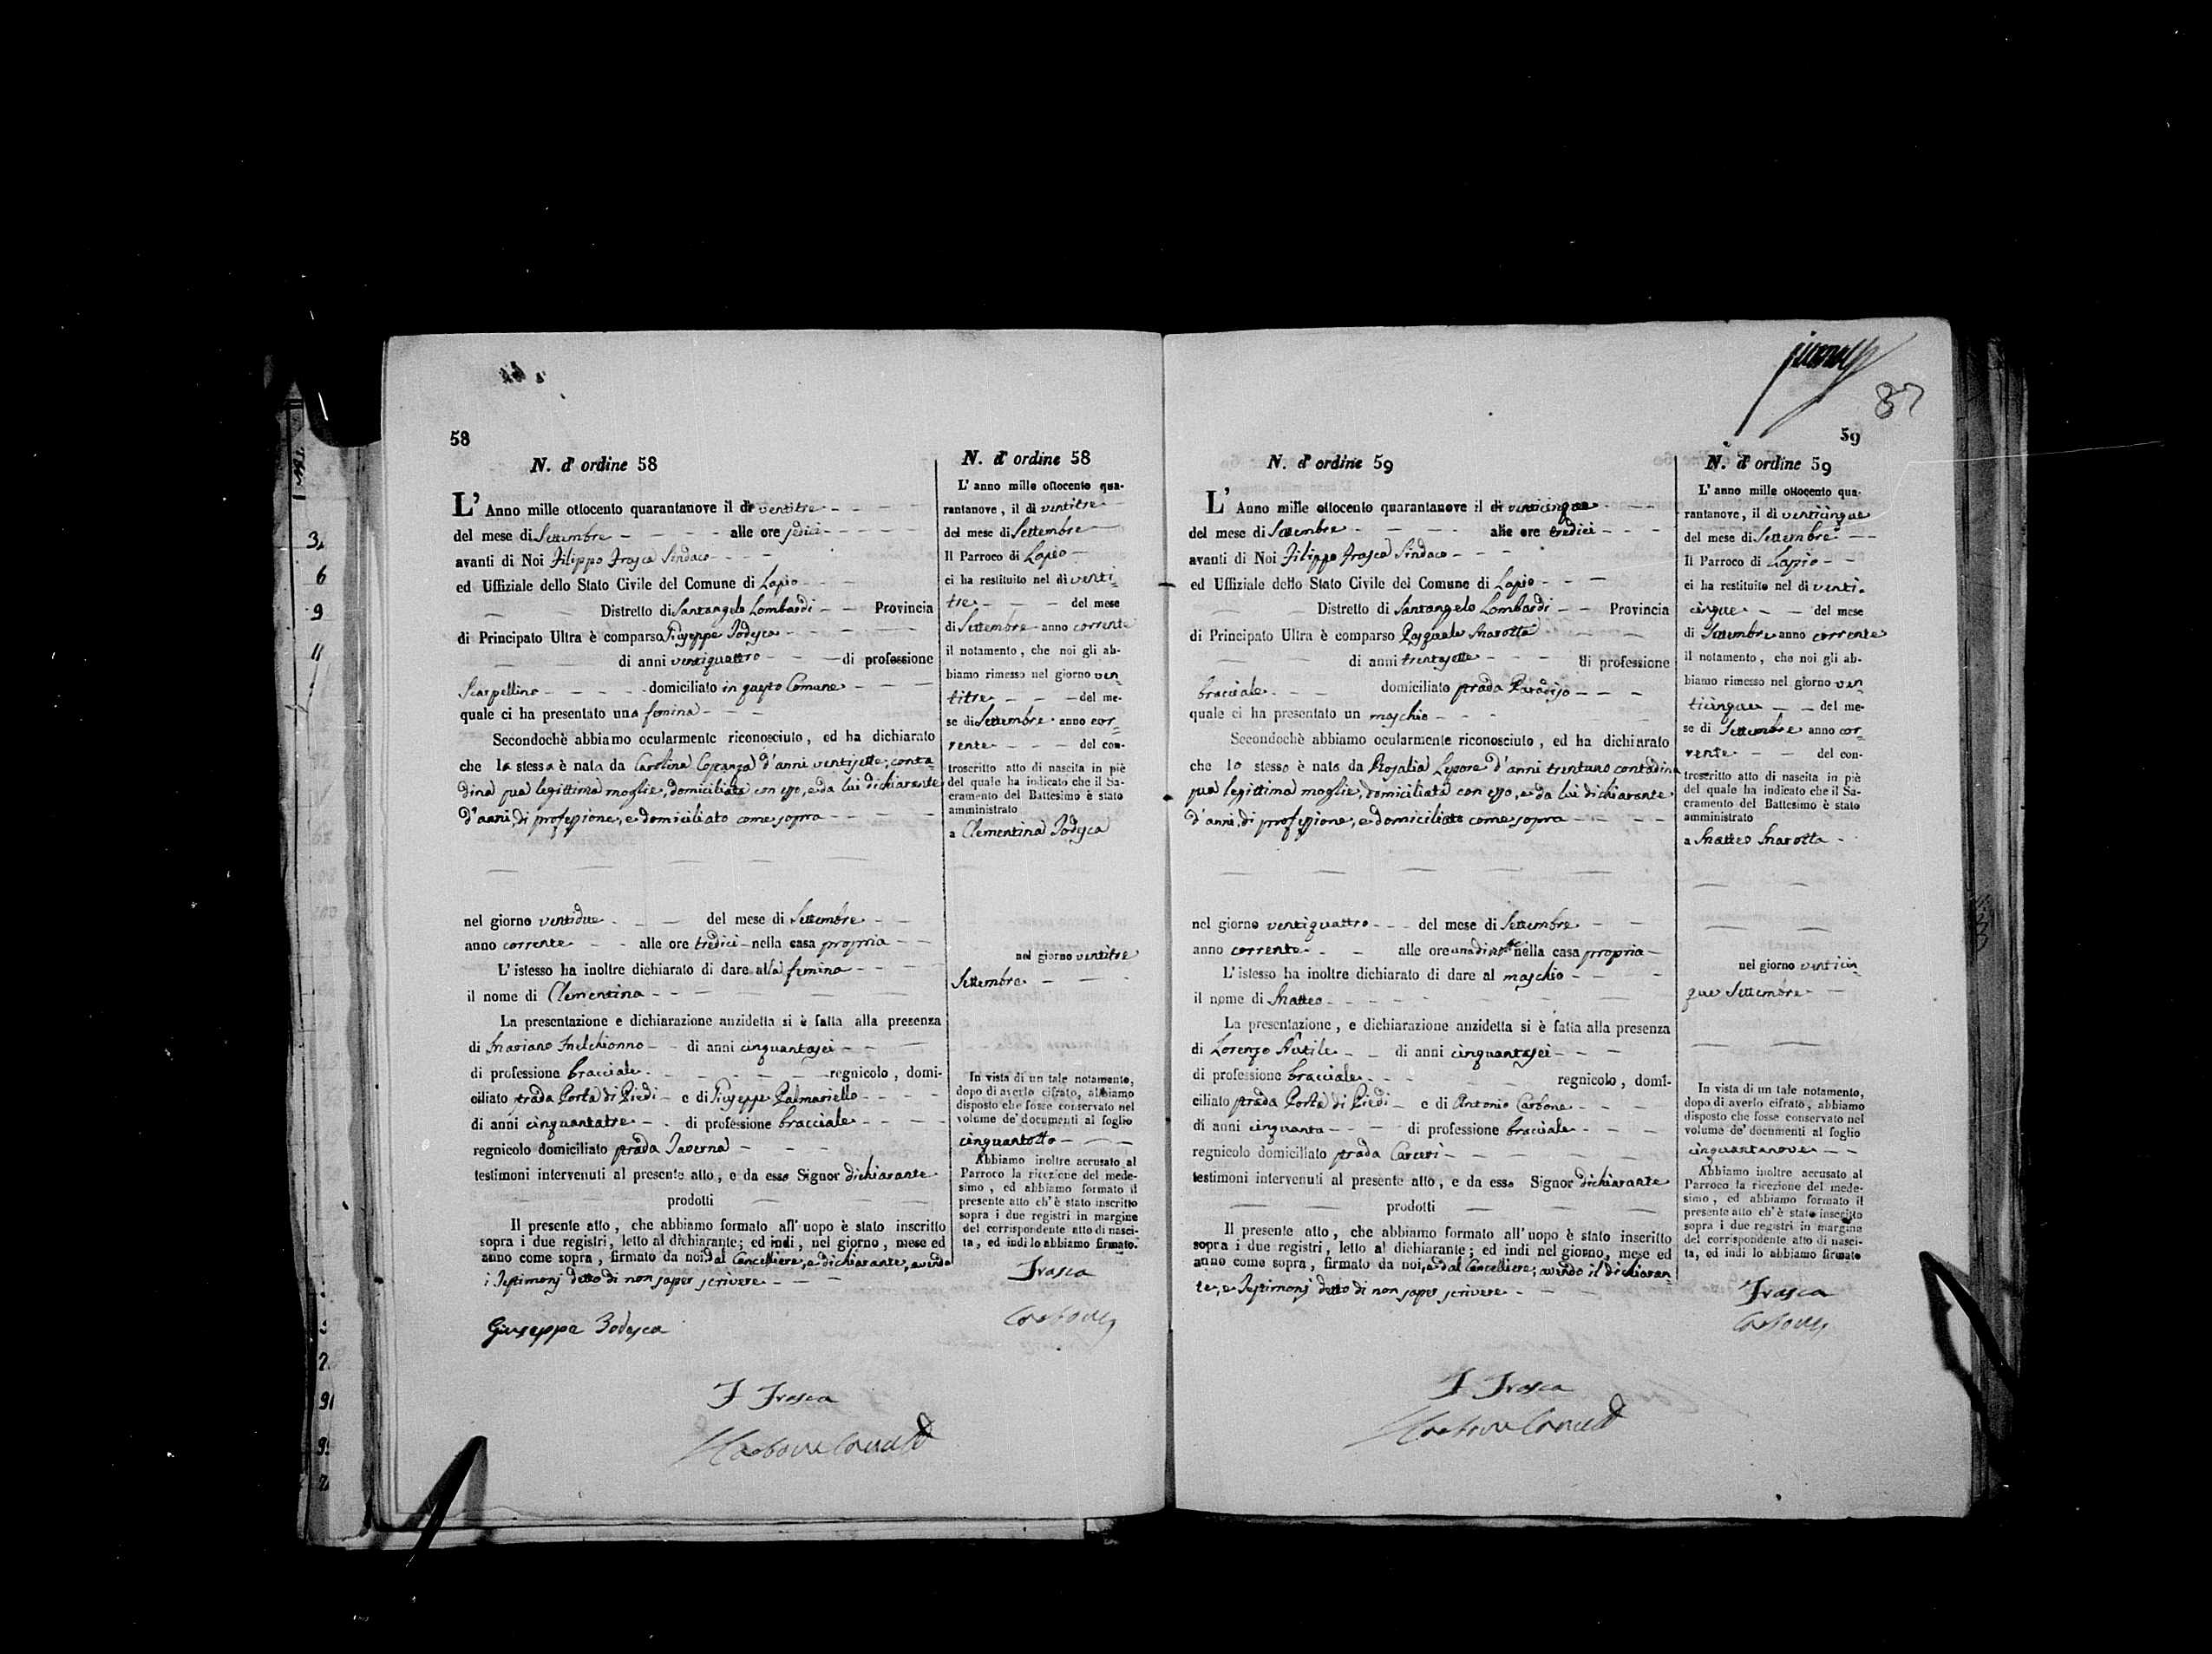 58
N. d' ordine 58
L' Anno mille ottocento quarantanove il dì ventitre
del mese di Settembre alle ore sedici
avanti di Noi Filippo Frasca Sindaco
ed Uffiziale dello Stato Civile del Comune di Lapio
Distretto di Santangelo Lombardi Provincia
di Principato Ultra è comparso Giuseppe Todesca
di anni ventiquattro di professione
Scarpellino domiciliato in questo Comune
quale ci ha presentato una femina
Secondochè abbiamo ocularmente riconosciuto, ed ha dichiarato
che la stessa è nata da Carolina Costanza d'anni ventisette, conta=
dina sua legittima moglie, domiciliata con esso, e da lui dichiarante
d'anni, di professione, e domiciliato come sopra
nel giorno ventidue del mese di Settembre
anno corrente alle ore tredici nella casa propria
L' istesso ha inoltre dichiarato di dare alla femina
il nome di Clementina
La presentazione e dichiarazione anzidetta si è fatta alla presenza
di Mariano Melchionno di anni cinquantasei
di professione bracciale regnicolo, domi-
ciliato strada Porta di Piedi e di Giuseppe Palmariello
di anni cinquantatre di professione bracciale
regnicolo domiciliato strada Taverna
testimoni intervenuti al presente atto, e da esso Signor dichiarante
prodotti
Il presente atto, che abbiamo formato all' uopo è stato inscritto
sopra i due registri, letto al dichiarante; ed indi, nel giorno, mese ed
anno come sopra, firmato da noi, dal Cancelliere, e dichiarante, avendo
i Testimonj detto di non saper scrivere
Giuseppe Todesca
F Frasca
N. d' ordine 58
L' anno mille ottocento qua-
rantanove, il dì ventitre
del mese di Settembre
Il Parroco di Lapio
ci ha restituito nel dì venti=
tre del mese
di Settembre anno corrente
il notamento, che noi gli ab-
biamo rimesso nel giorno ven=
titre del me-
se di Settembre anno cor=
rente del con-
troscritto atto di nascita in piè
del quale ha indicato che il Sa-
cramento del Battesimo è stato
amministrato
a Clementina Todesca
nel giorno ventitre
Settembre
In vista di un tale notamento,
dopo di averlo cifrato, abbiamo
disposto che fosse conservato nel
volume de' documenti al foglio
cinquantotto
Abbiamo inoltre accusato al
Parroco la ricezione del mede-
simo, ed abbiamo formato il
presente atto ch' è stato inscritto
sopra i due registri in margine
del corrispondente atto di nasci-
ta, ed indi lo abbiamo firmato.
Frasca
Carbone
87
59
N. d' ordine 59
L' Anno mille ottocento quarantanove il dì venticinque
del mese di Settembre alle ore tredici
avanti di Noi Filippo Frasca Sindaco
ed Uffiziale dello Stato Civile del Comune di Lapio
Distretto di Santangelo Lombardi Provincia
di Principato Ultra è comparso Pasquale Marotta
di anni trentasette di professione
bracciale domiciliato strada Paradiso
quale ci ha presentato un maschio
Secondochè abbiamo ocularmente riconosciuto, ed ha dichiarato
che lo stesso è nato da Rosalia Lepore d'anni trentuno contadina
sua legittima moglie, domiciliata con esso, e da lui dichiarante
d'anni, di professione, e domiciliato come sopra
nel giorno ventiquattro del mese di Settembre
anno corrente alle ore una di notte nella casa propria
L' istesso ha inoltre dichiarato di dare al maschio
il nome di Matteo
La presentazione, e dichiarazione anzidetta si è fatta alla presenza
di Lorenzo di anni cinquantasei
di professione bracciale regnicolo, domi-
ciliato strada Porta di Piedi e di Antonio Carbone
di anni cinquanta di professione bracciale
regnicolo domiciliato strada Carceri
testimoni intervenuti al presente atto, e da esso Signor dichiarante
prodotti
Il presente atto, che abbiamo formato all' uopo è stato inscritto
sopra i due registri, letto al dichiarante; ed indi nel giorno, mese ed
anno come sopra, firmato da noi, e dal Cancelliere, avendo il dichiaran=
te, e Testimonj detto di non saper scrivere
F Frasca
N. d' ordine 59
L' anno mille ottocento qua-
rantanove, il dì venticinque
del mese di Settembre
Il Parroco di Lapio
ci ha restituito nel dì venti=
cinque del mese
di Settembre anno corrente
il notamento, che noi gli ab-
biamo rimesso nel giorno ven=
ticinque del me-
se di Settembre anno cor=
rente del con-
troscritto atto di nascita in piè
del quale ha indicato che il Sa-
cramento del Battesimo è stato
amministrato
a Matteo Marotta
nel giorno venticin=
que Settembre
In vista di un tale notamento,
dopo di averlo cifrato, abbiamo
disposto che fosse conservato nel
volume de' documenti al foglio
cinquantanove
Abbiamo inoltre accusato al
Parroco la ricezione del mede-
simo, ed abbiamo formato il
presente atto ch' è stato inscritto
sopra i due registri in margine
del corrispondente atto di nasci-
ta, ed indi lo abbiamo firmato
Frasca
Carbone